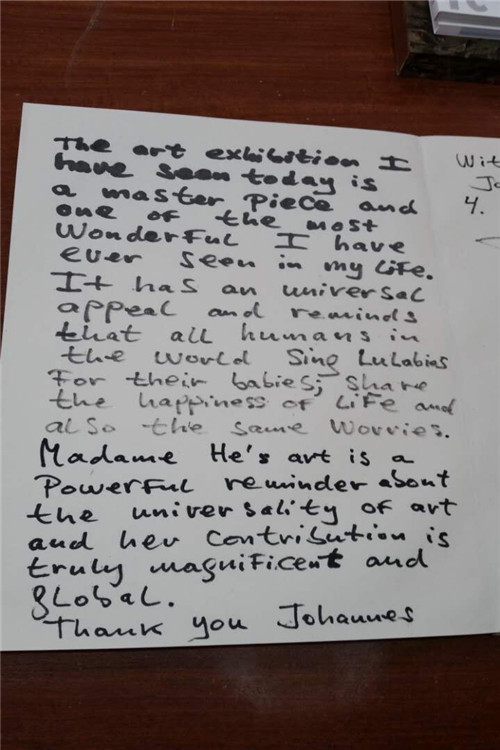 The art exhibition I
have seen today is
a master piece and
one of the most
wonderful I have
ever seen in my life.
It has an universal
appeal and reminds
that all humans in
the world sing Lulabies
For their babies; share
the happiness of Life and
also the same worries.
Madame He's art is a
Powerful reminder about
the universality of art
and her contribution is
truly magnificent and
global.
Thank you Johannes
4.